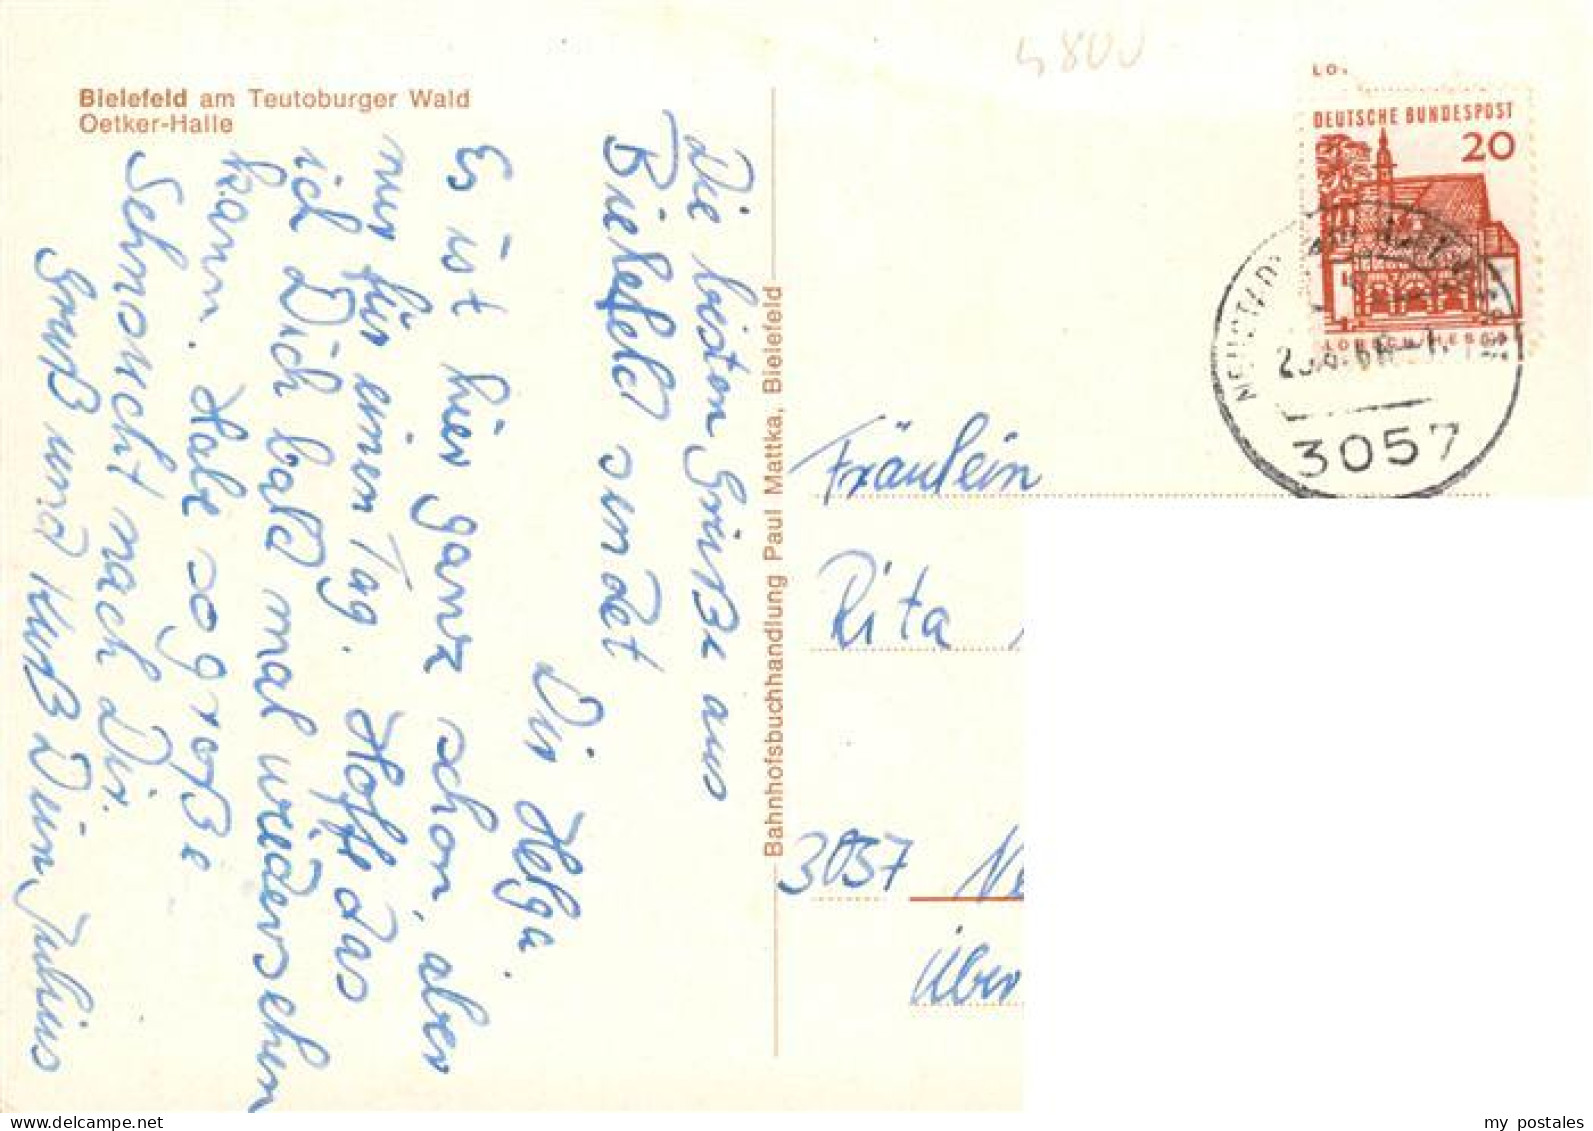 Bielefeld am Teutoburger Wald
Oetker-Halle
Die besten Grüße aus
Bielefeld sendet
Dir Helga.
Es ist hier ganz schon, aber
nur für einen Tag. Hoffe das
ich Dich bald mal wiedersehen
kann. Habe so große
Sehnsucht nach Dir.
Gruß und Kuß Dein Julius
Bahnhofsbuchhandlung Paul Mattka, Bielefeld
4800
LO
DEUTSCHE BUNDESPOST
20
LORSCH/HESSEN
NEUSTADT AM RÜBENBERGE
3057
Fräulein
Rita
3057 Ne
Über
my postales